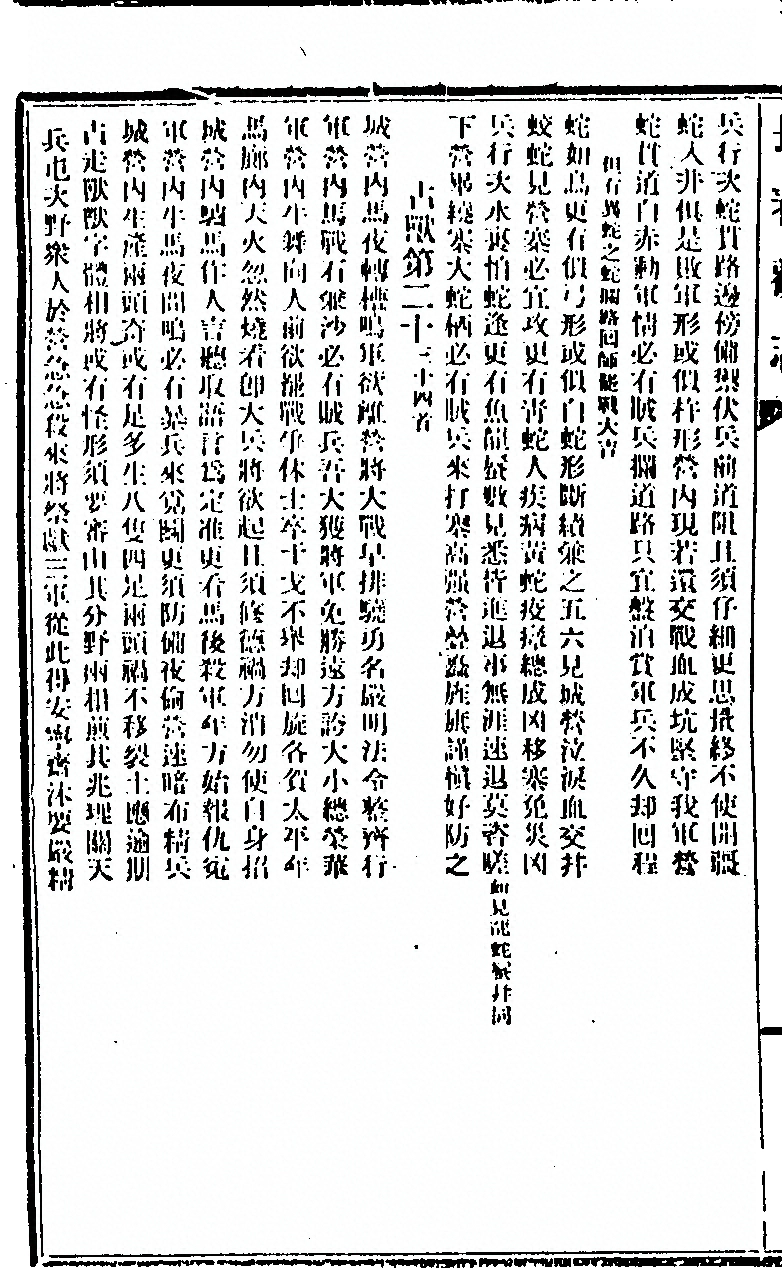 兵行次蛇貫路邊傍備烈伏兵前道阻且須仔細更思推終不使開溉
蛇入井但是敗軍形或似杵形營內現若還交戰血成坑堅守我軍營
蛇貫道白赤動軍情必有賊兵攔道路只宜盤泊賞軍兵不久却回程
但有異蛇之蛇攔路回師能戰大吉
蛇如烏更有似弓形或似白蛇形斷續兼之五六見城營泣淚血交并
蛟蛇見營寨必宜攻更有靑蛇人疾病黃蛇疫療總成凶移寨免災凶
兵行次水裏怕蛇逢更有魚龍蜃數見悉皆進退事無涯速退莫咨嗟如見龍蛇蜃井同
下營畢繞寨大蛇栖必有賊兵來打寨高强營壘蠡旌旗謹愼好防之
占獸第二十三十四首
城營內馬夜轉槽鳴軍欲離營將大戰早排驍勇名嚴明法令整齊行
軍營內馬戰有飛沙必有賊兵吾大獲將軍免勝遠方誇大小總榮華
軍營內牛舞向人前欲擺戰爭休士卒干戈不舉却回旋各賀太平年
馬廊內天火忽然燒看卽大兵將欲起且須修德禍方消勿使自身招
城營內驢馬作人言聽取語言爲定准更看馬後殺軍年方始報仇寃
軍營內牛馬夜間鳴必有暴兵來覓鬭更須防備夜偷營速暗布精兵
城營內生產兩頭奇或有足多生八隻四足兩頭禍不移裂土應逾期
占走獸獸字體相將或有怪形須要審由其分野兩相煎其兆理關天
兵屯次野衆人於營急急殺來將祭獻三軍從此得安寧齋沐要嚴精